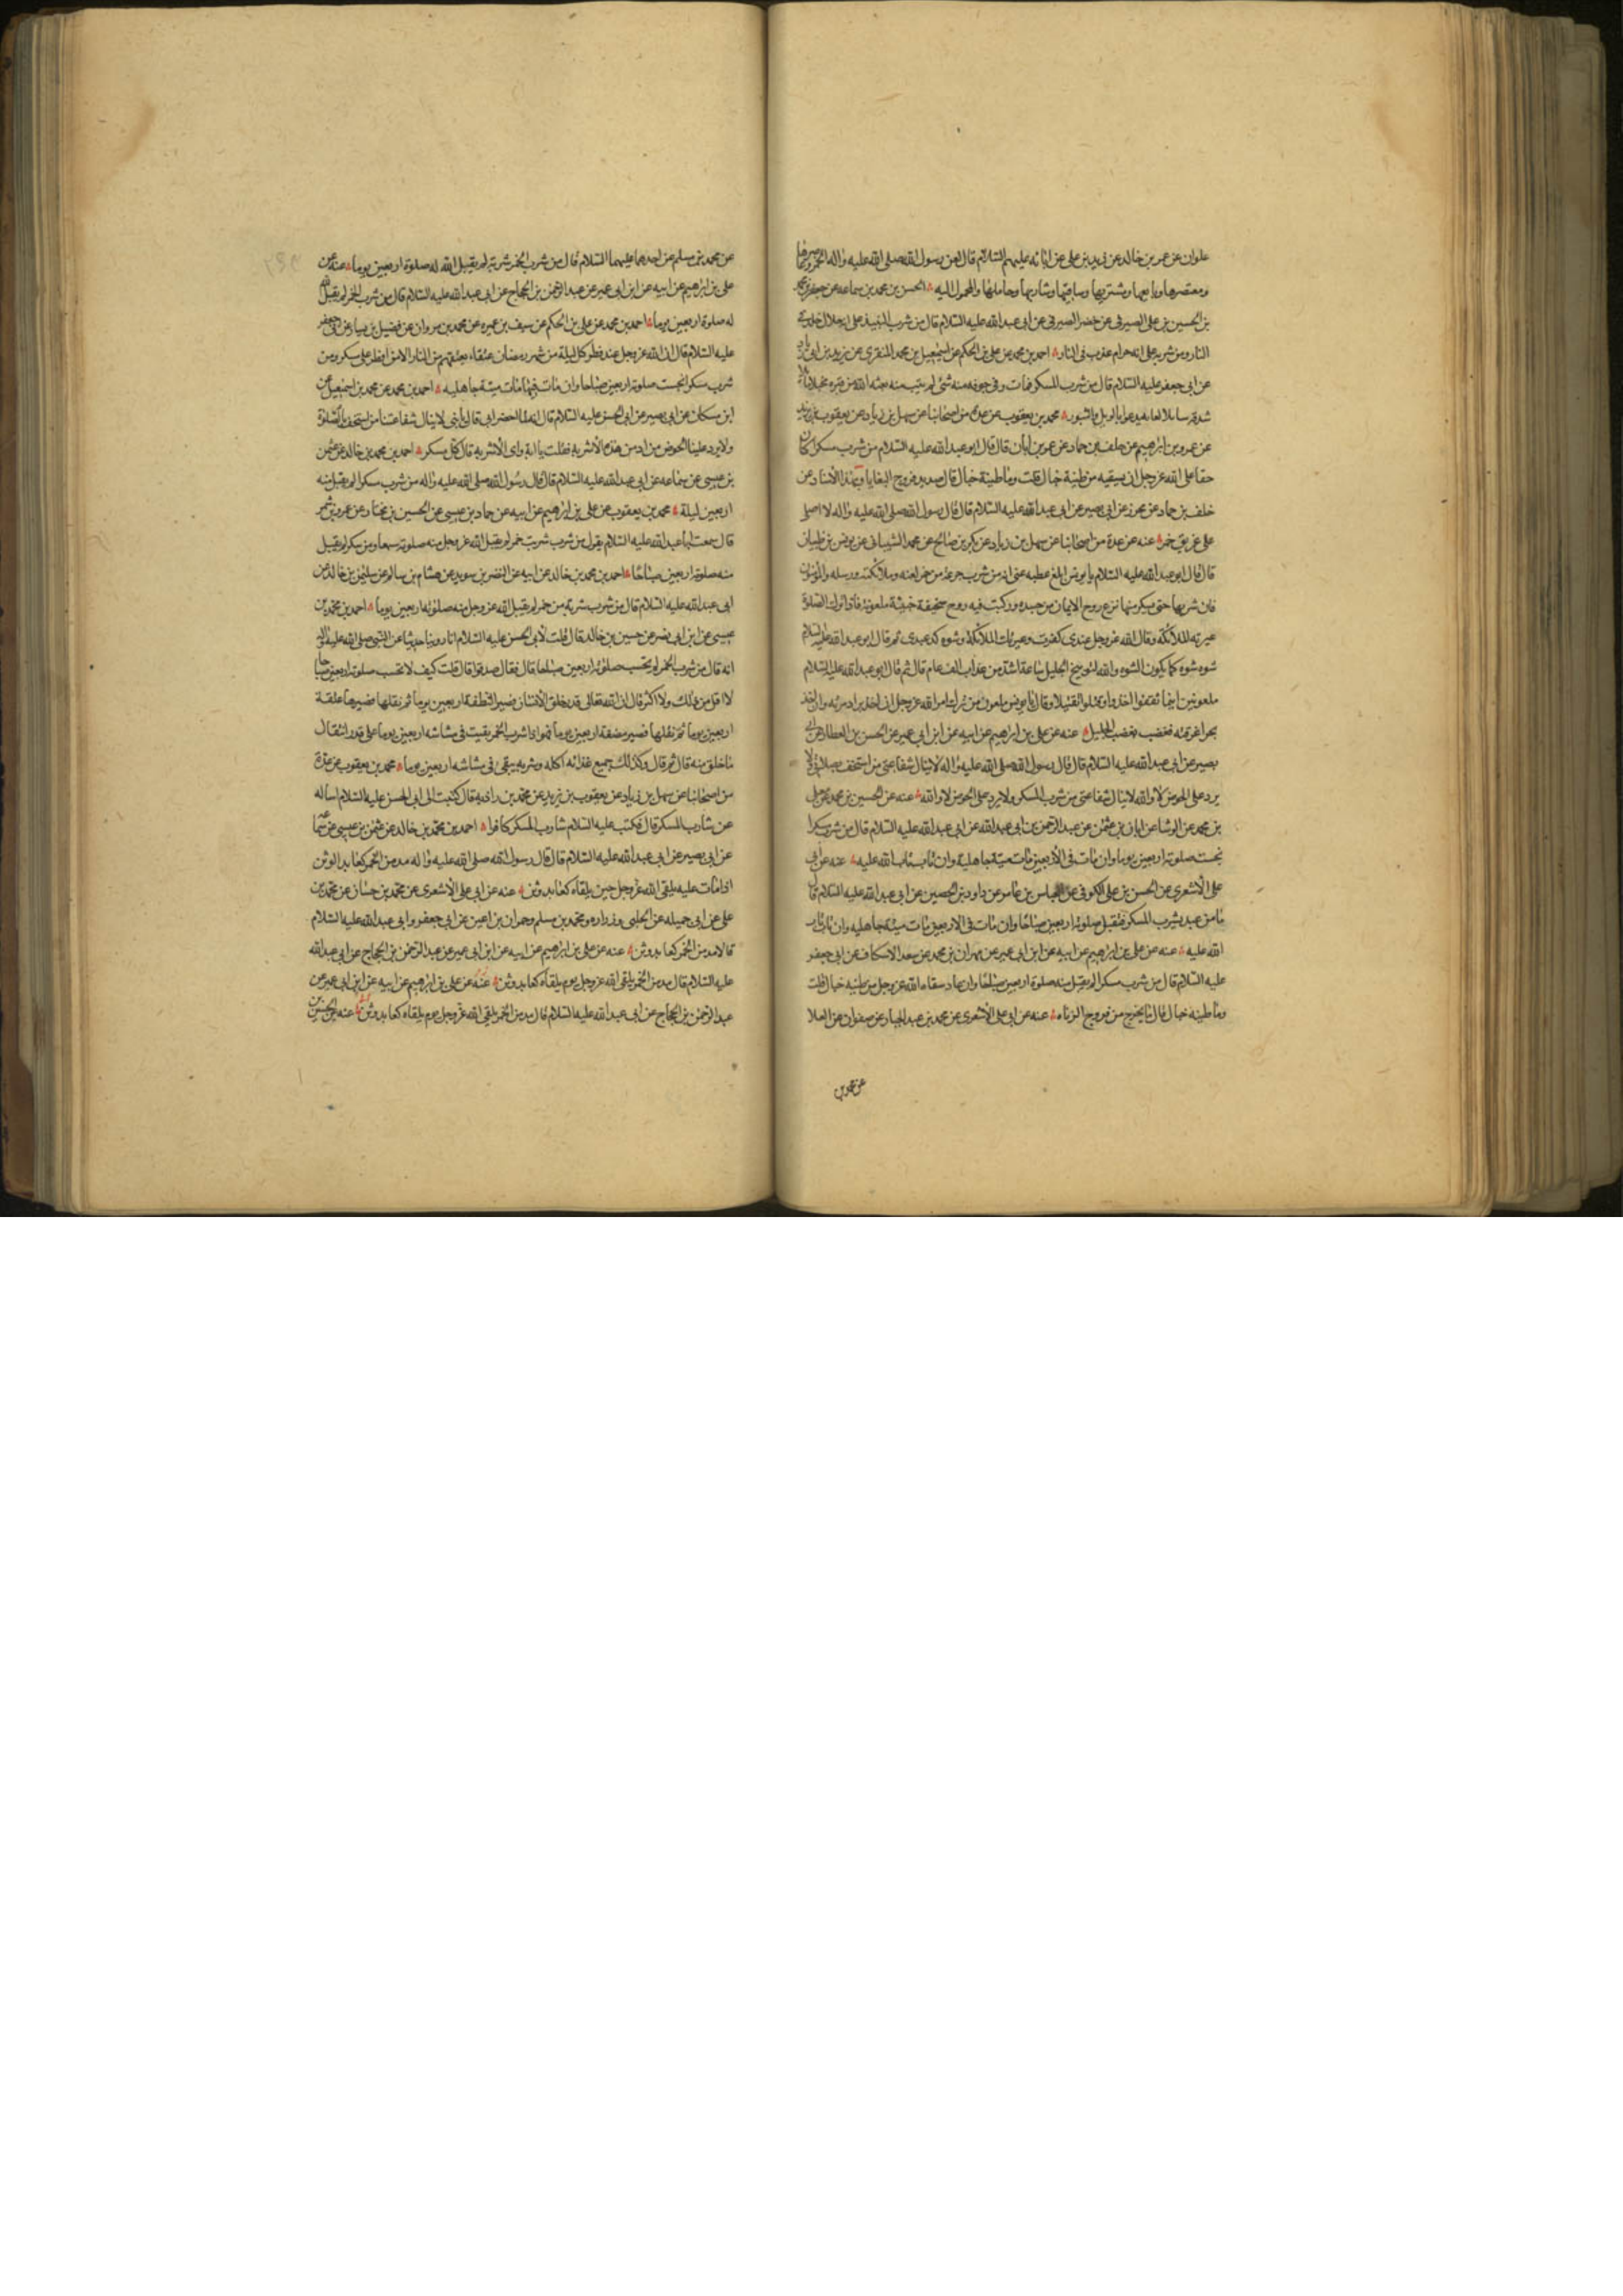 علوان عن عمر بن خالد عن زيد بن على عن ابائه عليهم السلام قال لعن رسول الله صلى الله عليه واله الخمر وعاصرها
ومعتصرها وبايعها ومشتريها وساقيها وشاربها وحاملها والمحمولة اليه الحسن بن محمد بن سماعه عن جعفر
بن الحسين بن على الصيرفى عن خضر الصيرفى عن ابى عبد الله عليه السلام قال من شرب النبيذ على انه حلال خلد فى
النار ومن شربه على انه حرام عذب فى النار احمد بن محمد عن على بن الحكم عن اسمعيل بن محمد المنقرى عن يزيد بن ابى زياد
عن ابى جعفر عليه السلام قال من شرب المسكر فمات وفى جوفه منه شئ لم يتب منه بعثه الله من قبره مخبلا
شدقه سايلا لعابه يدعوا بالويل والثبور محمد بن يعقوب عن عدة من اصحابنا عن سهل بن زياد عن يعقوب بن يزيد
عن عمرو بن ابرهيم عن خلف بن حماد عن عمر بن ابان قال قال ابو عبد الله عليه السلام من شرب مسكرا كان
حقا على الله عز وجل ان يسقيه من طينة خبال قلت وما طينة خبال قال صديد فروج البغايا وبهذا الاسناد عن
خلف بن حماد عن محرز عن ابى بصير عن ابى عبد الله عليه السلام قال قال رسول الله صلى الله عليه واله لا اصلى
على غريق خمر عنه عن عدة من اصحابنا عن سهل بن زياد عن بكر بن صالح عن محمد الشيبانى عن يونس بن ظبيان
قال قال ابو عبد الله عليه السلام يا يونس ابلغ عطيه عنى انه من شرب جرعة من خمر لعنه وملائكته ورسله والمؤمنون
فان شربها حتى يسكر منها نزع روح الايمان من جسده وركبت فيه روح سخيفة خبيثة ملعونة فاذا ترك الصلوة
عيرته الملائكة وقال الله عز وجل عبدى كفرت وعيرتك الملائكة وسوءة لك عبدى ثم قال ابو عبد الله عليه السلام
سوءة سوءة كما يكون السوءة والله لتوبيخ الجليل ساعة اشد من عذاب الف عام قال ثم قال ابو عبد الله عليه السلام
ملعونين اينما ثقفوا اخذوا وقتلوا تقتيلا وقال يا يونس ملعون من ترك امر الله عز وجل ان اخذ برا دمرته وان اخذ
بحرا غرقته فغضب بغضب الجليل عنه عن على بن ابرهيم عن ابيه عن ابن ابى عمير عن الحسن بن العطار عن ابى
بصير عن ابى عبد الله عليه السلام قال قال رسول الله صلى الله عليه واله لا ينال شفاعتى من استخف بصلاته ولا
يرد على الحوض لا والله لا ينال شفاعتى من شرب المسكر ولا يرد على الحوض لا والله عنه عن الحسين بن محمد عن معلى
بن محمد عن الوشا عن ابان بن عثمن عن عبد الرحمن بن ابى عبد الله عن ابى عبد الله عليه السلام قال من شرب مسكرا
نجست صلوته اربعين يوما وان مات فى الاربعين مات ميتة جاهلية وان تاب تاب الله عليه عنه عن ابى
على الاشعرى عن الحسن بن على الكوفى عن العباس بن عامر عن داود بن الحصين عن ابى عبد الله عليه السلام قال
ما من عبد يشرب المسكر فتقبل صلوته اربعين صباحا وان مات فى الاربعين مات ميتة جاهليه وان تاب تاب
الله عليه عنه عن على بن ابرهيم عن ابيه عن ابن ابى عمير عن مهران بن محمد عن سعد الاسكاف عن ابى جعفر
عليه السلام قال من شرب مسكرا لم يقبل منه صلوة اربعين صباحا وان عاد سقاه الله عز وجل من طينه خبال قلت
وما طينه خبال قال ما يخرج من فروج الزناه عنه عن ابى على الاشعرى عن محمد بن عبد الجبار عن صفوان عن العلا
عن محمد بن
عن محمد بن مسلم عن احدهما عليهما السلام قال من شرب الخمر شربة لم يقبل الله له صلوة اربعين يوما عنه عن
على بن ابرهيم عن ابيه عن ابن ابى عمير عن عبد الرحمن بن الحجاج عن ابى عبد الله عليه السلام قال من شرب الخمر لم يقبل الله
له صلوة اربعين يوما احمد بن محمد عن على بن الحكم عن سيف بن عميره عن محمد بن مروان عن فضيل بن يسار عن ابى جعفر
عليه السلام قال ان لله عز وجل عند فطر كل ليلة من شهر رمضان عتقاء يعتقهم من النار الا من افطر على مسكر ومن
شرب مسكرا نجست صلوته اربعين صباحا وان مات فيها مات ميتة جاهليه احمد بن محمد عن محمد بن اسمعيل عن
ابن مسكان عن ابى بصير عن ابى الحسن عليه السلام قال انه لما احتضر ابى قال يا بنى لا ينال شفاعتنا من استخف بالصلوة
ولا يرد علينا الحوض من ادمن هذه الاشربة فقلت يا ابة واى الاشربة قال كل مسكر احمد بن محمد بن خالد عن عثمن
بن عيسى عن سماعه عن ابى عبد الله عليه السلام قال قال رسول الله صلى الله عليه واله من شرب مسكرا لم يقبل منه
اربعين ليلة محمد بن يعقوب عن على بن ابرهيم عن ابيه عن حماد بن عيسى عن الحسين بن مختار عن عمرو بن شمر
قال سمعت ابا عبد الله عليه السلام يقول من شرب شربت خمر لم يقبل الله عز وجل منه صلوته سبعا ومن سكر لم يقبل
منه صلوته اربعين صباحا احمد بن محمد بن خالد عن ابيه عن النضر بن سويد عن هشام بن سالم عن سليمن بن خالد عن
ابى عبد الله عليه السلام قال من شرب شربة من خمر لم يقبل الله عز وجل منه صلوته اربعين يوما احمد بن محمد بن
عيسى عن ابن ابى نصر عن حسين بن خالد قال قلت لابى الحسن عليه السلام انا روينا حديثا عن النبى صلى الله عليه واله
انه قال من شرب الخمر لم يحتسب صلوته اربعين صباحا قال فقال صدقوا قال قلت كيف لا تحتسب صلوته اربعين صباحا
لا اقل من ذلك ولا اكثر قال ان الله تعالى قدر خلق الانسان فصير النطفة اربعين يوما ثم نقلها فصيرها علقة
اربعين يوما ثم نقلها فصير مضغة اربعين يوما فهو اذا شرب الخمر بقيت فى مشاشه اربعين يوما على قدر انتقال
ما خلق منه قال ثم قال وكذلك جميع غذائه اكله وشربه يبقى فى مشاشه اربعين يوما محمد بن يعقوب عن عدة
من اصحابنا عن سهل بن زياد عن يعقوب بن يزيد عن محمد بن داذبه قال كتبت الى ابى الحسن عليه السلام اساله
عن شارب المسكر قال فكتب عليه السلام شارب المسكر كافرا احمد بن محمد بن خالد عن عثمن بن عيسى عن سماعه
عن ابى بصير عن ابى عبد الله عليه السلام قال قال رسول الله صلى الله عليه واله مدمن الخمر كعابد الوثن
اذا مات عليه يلقى الله عز وجل حين يلقاه كعابد وثن عنه عن ابى على الاشعرى عن محمد بن حسان عن محمد بن
على عن ابى جميله عن الحلبى وزراره ومحمد بن مسلم وحمران بن اعين عن ابى جعفر وابى عبد الله عليه السلام
قالا مدمن الخمر كعابد وثن عنه عن على بن ابرهيم عن ابيه عن ابن ابى عمير عن عبد الرحمن بن الحجاج عن ابى عبد الله
عليه السلام قال مدمن الخمر يلقى الله عز وجل يوم يلقاه كعابد وثن عنه عن على بن ابرهيم عن ابيه عن ابن ابى عمير عن
عبد الرحمن بن الحجاج عن ابى عبد الله عليه السلام قال مدمن الخمر يلقى الله عز وجل يوم يلقاه كعابد وثن عنه عن الحسين بن